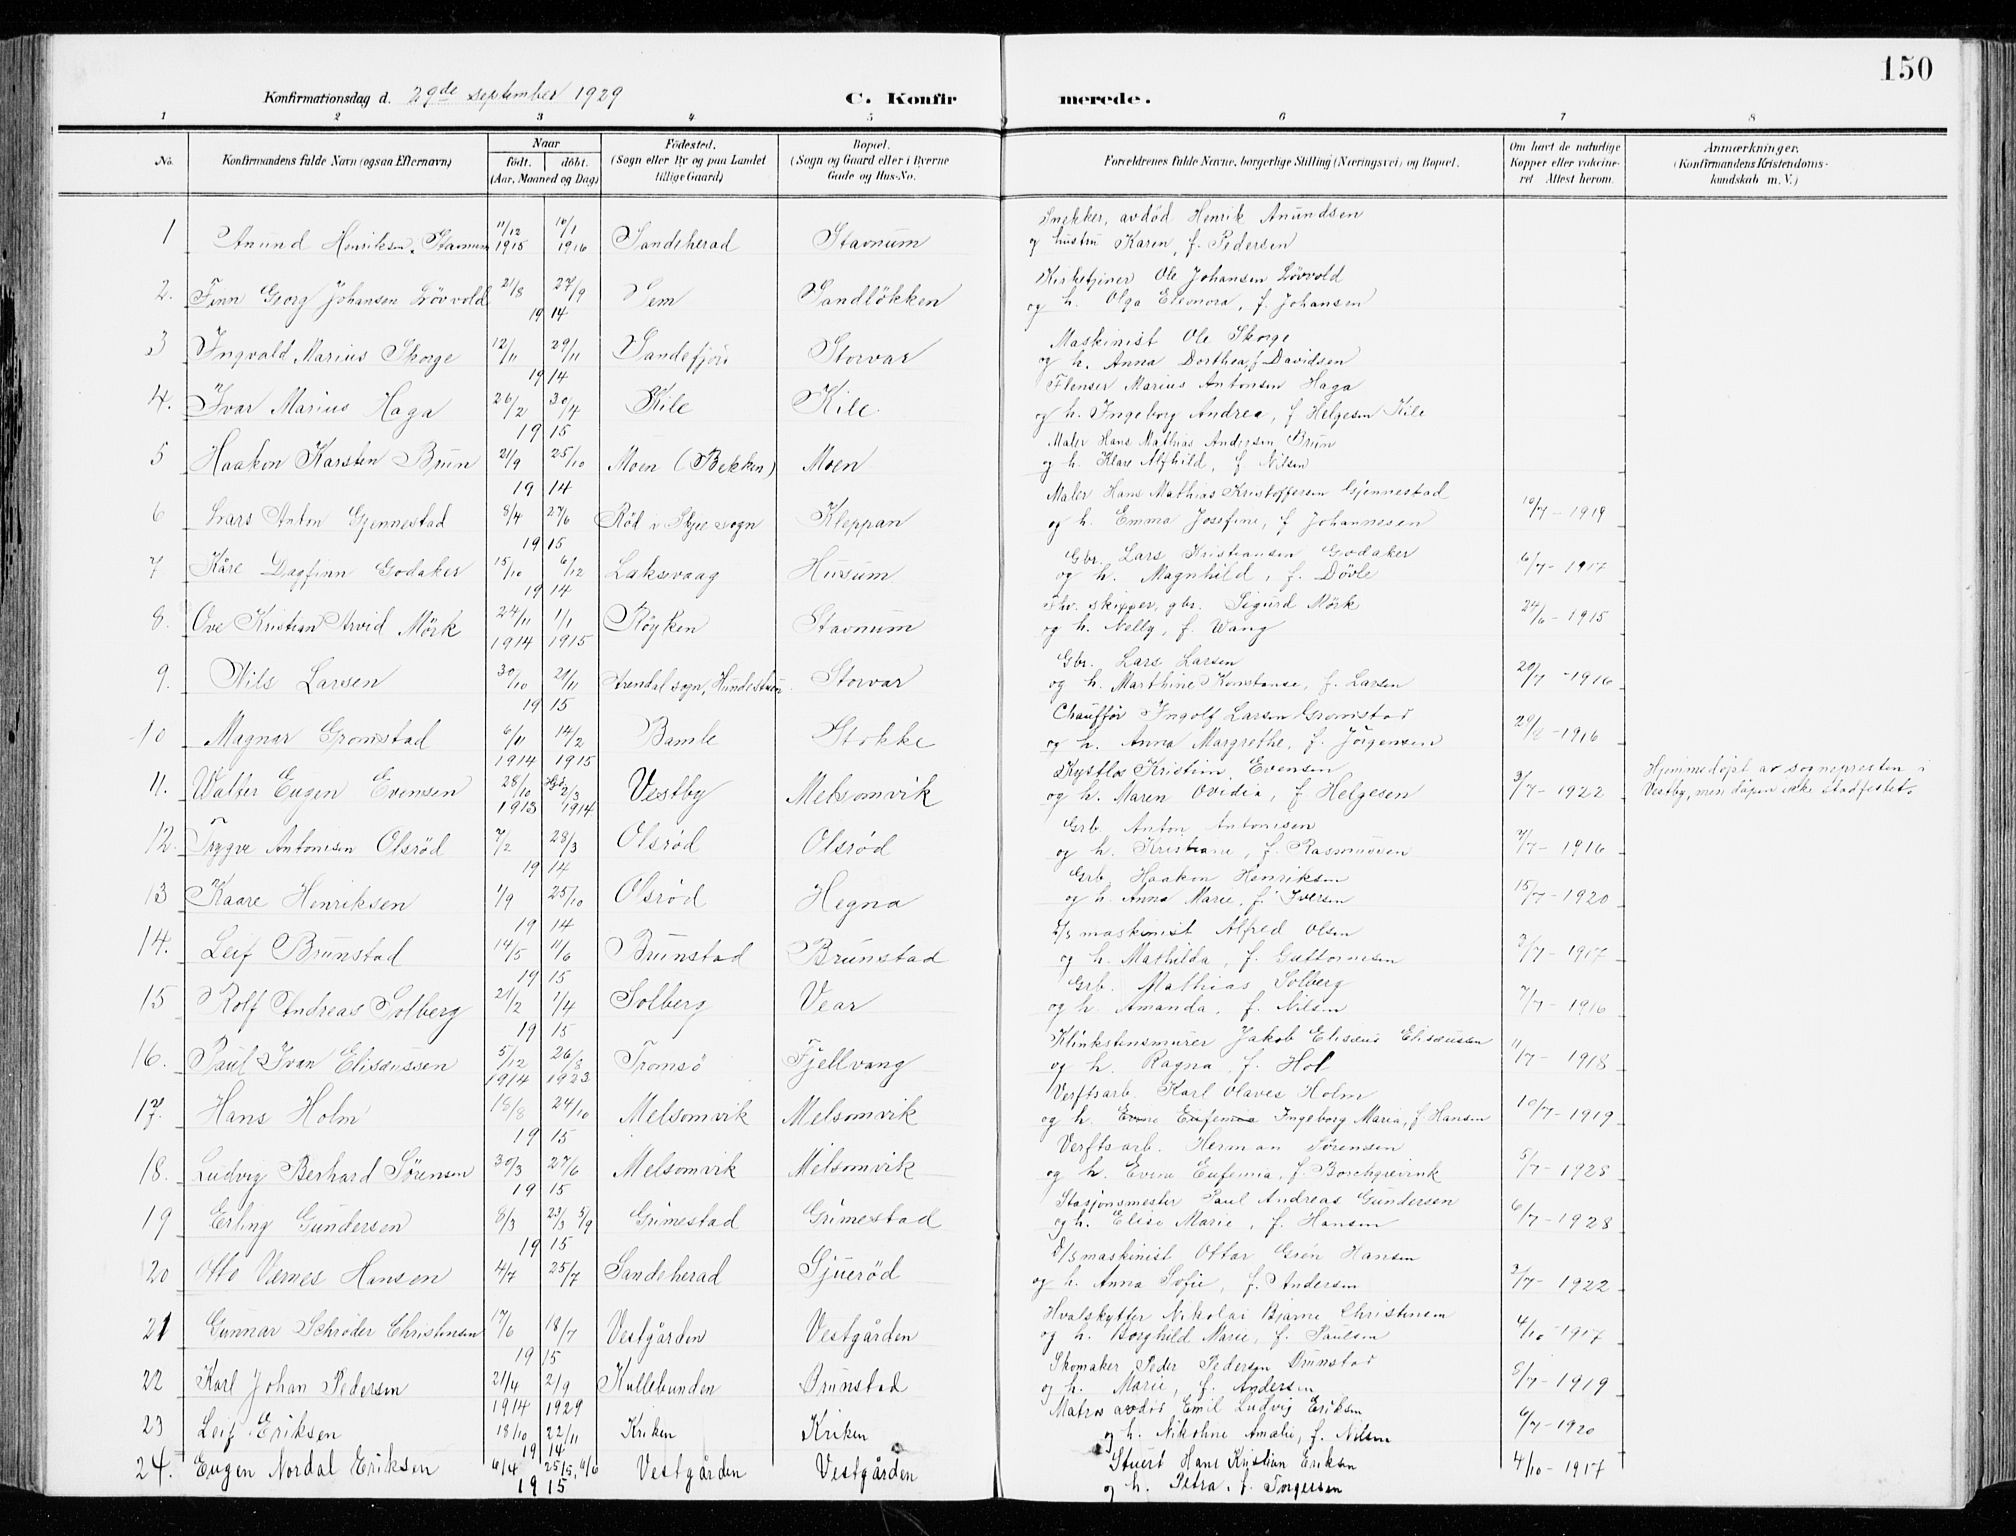 150
Konfirmationsdag d. 29de september 1929 C. Konfirmerede.
1 2 3 4 5 6 7 8
No. Konfirmandens fulde Navn (ogsaa Efternavn) Naar født. døbt. (Aar, Maaned og Dag) Fødested. (Sogn eller By og paa Landet tillige Gaard) Bopæl. (Sogn og Gaard eller i Byerne Gade og Hus-No. Forældrenes fulde Navne, borgerlige Stilling (Næringsvei) og Bopæl. Om havt de naturlige Kopper eller vaccineret Attest herom. Anmærkninger. (Konfirmandens Kristendomskundskab m. V.)
1 Anund Henriksen Stavnum 11/12 1915 16/1 1916 Sandeherad Stavnum Snekker, avdød Henrik Anundsen
og hustru Karen, f. Pedersen
2. Finn Georg Johansen Lövvold 21/8 27/9 1914 Sem Sandløkken Kirketjener Ole Johansen Lövvold
og h. Olga Eleonora, f. Johansen
3 Ingvald Marius Skorge 12/11 29/11 1914 Sandefjord Storvar Maskinist Ole Skorge
og h. Anna Dorthea, f. Davidsen
4. Ivar Marius Haga 26/2 30/4 1915 Kile Kile Flenser Marius Antonsen Haga
og h. Ingeborg Andrea, f. Helgesen Kile
5 Haakon Karsten Brun 21/9 25/10 1914 Moen (Bekken) Moen Maler Hans Mathias Andersen Brun
og h. Klara Alfhild, f. Nilsen
6 Lars Anton Gjennestad 8/4 27/6 1915 Rød i Skjee sogn Kleppan Maler Hans Mathias Kristoffersen Gjennestad 10/7 - 1919
og h. Emma Josefine, f. Johannesen
7 Kåre Dagfinn Godaker 15/10 6/12 1914 Laksevaag Husum Gbr. Lars Kristiansen Godaker 6/7 - 1917
og h. Magnhild, f. Døvle
8. Ove Kristian Arvid Mörk 24/11 1914 1/1 1915 Røyken Stavnum Fhv. skipper, gbr. Sigurd Mörk 24/6 - 1915
og h. Nelly, f. Wang
9. Nils Larsen 30/10 21/11 1915 Storvar Gbr. Lars Larsen 20/7 - 1916
og h. Marthine Konstanse, f. Larsen
10 Magnar Gromstad 6/11 1914 14/2 1915 Bamle Stokke Chauffør Ingolf Larsen Gromstad 29/8 - 1916
og h. Anna Margrethe, f. Jörgensen
11. Walter Eugen Evensen 28/10 1913 2/3 1914 Vestby Melsomvik Kristian Evensen 3/7 - 1922 Hjemmedøpt av sognepresten i
og h. Maren Ovidia, f. Helgesen Vestby, men dåpen ikke stadfestet.
12. Trygve Antonisen Olsröd 7/2 28/3 1914 Olsröd Olsröd Grb. Anton Antonisen 7/7 - 1916
og h. Kristiane, f. Rasmussen
13 Kaare Henriksen 1/9 25/10 1914 Olsröd Hegna Grb. Haakon Henriksen 15/7 - 1920
og h. Anna Marie, f. Iversen
14. Leif Brunstad 14/5 11/6 1915 Brunstad Brunstad D/S maskinist Alfred Olsen 3/7 - 1917
og h. Mathilda, f. Guttormsen
15 Rolf Andreas Solberg 21/2 1/4 1915 Solberg Vear Grb. Mathias Solberg 7/7 - 1916
og h. Amanda, f. Nilsen
16. Paul Ivan Elisæussen 5/12 1914 26/8 1923 Tromsö Fjellvang Klinkstensmurer Jakob Elisæus Elisæussen 11/7 - 1918
og h. Ragna, f. Hol
17. Hans Holm 18/8 24/10 1915 Melsomvik Melsomvik Verftsarb. Karl Olaves Holm 10/7 - 1919
og h. Evine Eufemia Ingeborg Maria, f. Hansen
18. Ludvig Berhard Sörensen 30/3 27/6 1915 Melsomvik Melsomvik Verftsarb. Herman Sørensen 5/7 - 1928
og h. Evine Eufemia, f. Borchgrevink
19 Erling Gundersen 8/3 23/3 5/9 1915 Grimestad Grimestad Stasjonsmester Paul Andreas Gundersen 6/7 - 1928
og h. Elise Marie, f. Hansen
20 Otto Værnes Hansen 4/7 25/7 Sandeherad Gjuerød D/S maskinist Ottar Grön Hansen 3/7 - 1922
og h. Anna Sofie, f. Andersen
21 Gunnar Schrøder Christensen 17/6 18/7 1915 Vestgården Vestgården Hvalskytter Nikolai Bjarne Christensen 4/10 - 1917
og h. Borghild Marie, f. Paulsen
22 Karl Johan Pedersen 21/4 1914 2/9 1929 Hullebunden Brunstad Skomaker Peder Pedersen Brunstad 5/7 - 1919
og h. Marie, f. Andersen
23 Leif Eriksen 18/10 22/11 1914 Kriken Kriken Matros avdød Emil Ludvig Eriksen 6/7 - 1920
og h. Nikoline Amalie, f. Nilsen
24. Eugen Nordal Eriksen 6/4 25/5, 6/6 1915 Vestgården Vestgården Stuert Hans Kristian Eriksen 4/10 - 1917
og h. Petra, f. Torgersen